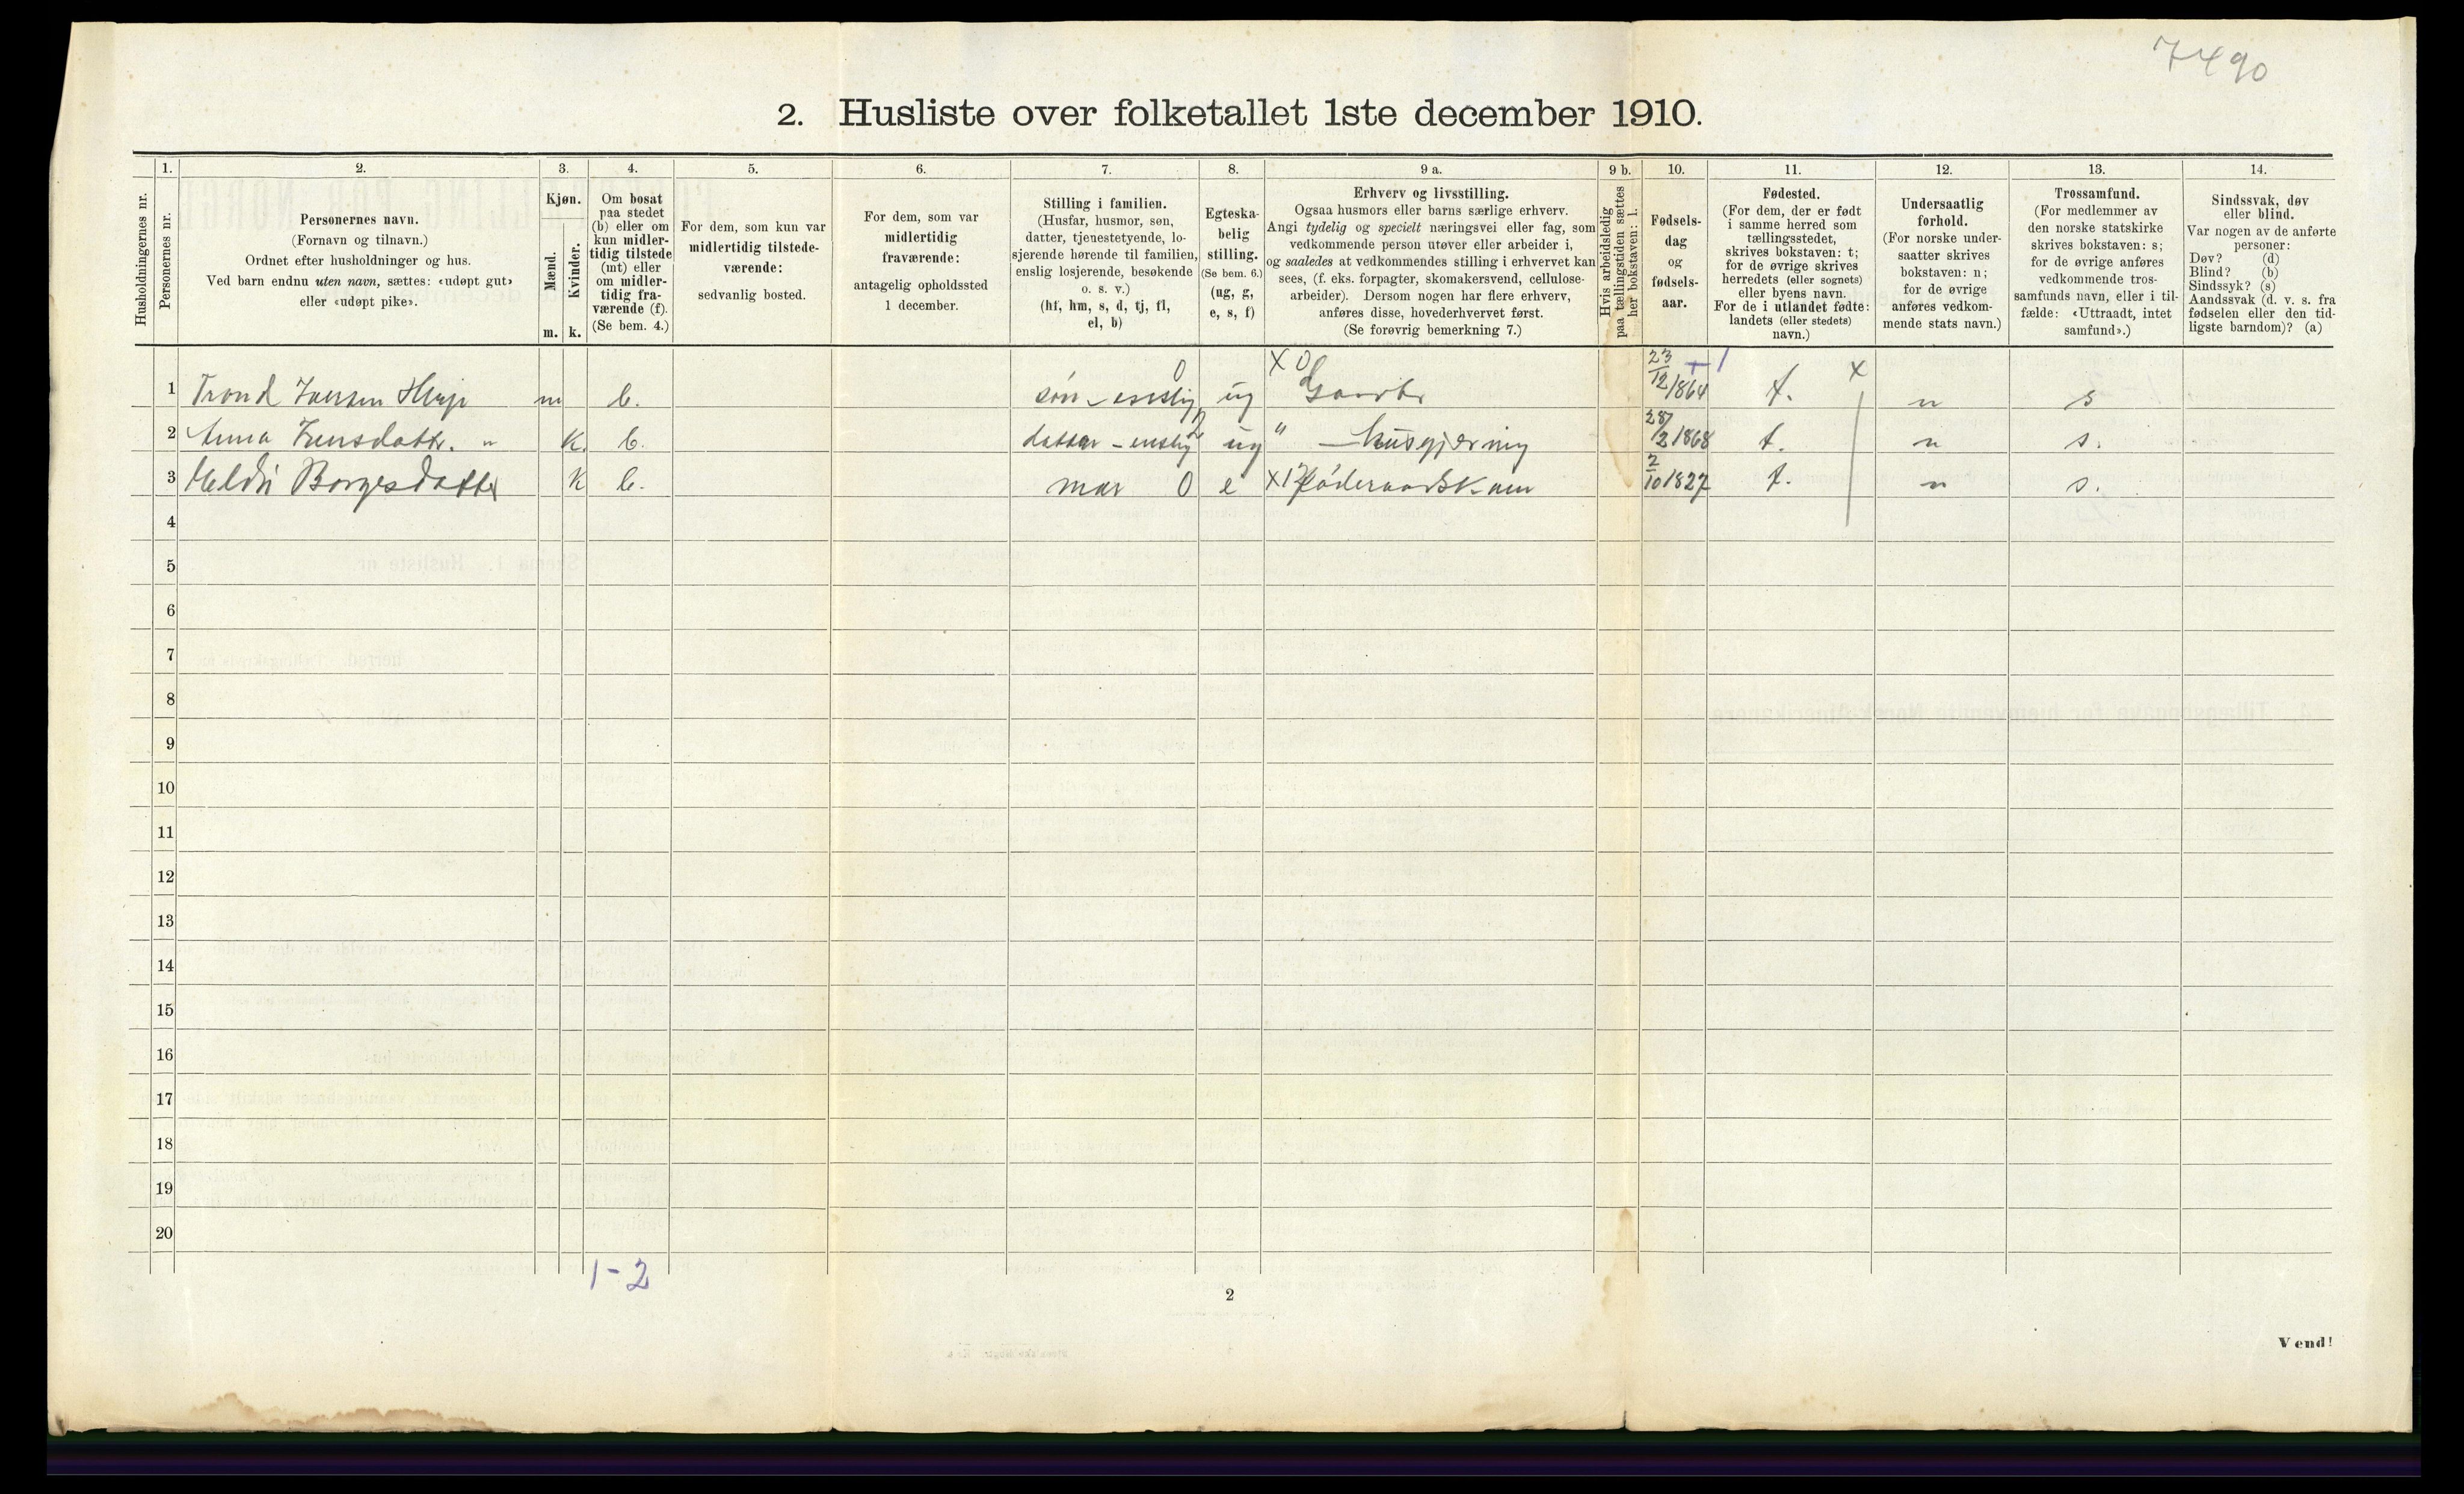 7490
2. Husliste over folketallet 1ste december 1910.
Husholdningernes nr.
1.
Personernes nr.
2.
Personernes navn.
(Fornavn og tilnavn.)
Ordnet efter husholdninger og hus.
Ved barn endnu uten navn, sættes: «udøpt gut»
eller «udøpt pike».
3.
Kjøn.
Mænd.
m.
Kvinder.
k.
4.
Om bosat
paa stedet
(b) eller om
kun midler-
tidig tilstede
(mt) eller
om midler-
tidig fra-
værende (f).
(Se bem. 4.)
5.
For dem, som kun var
midlertidig tilstede-
værende:
sedvanlig bosted.
6.
For dem, som var
midlertidig
fraværende:
antagelig opholdssted
1 december.
7.
Stilling i familien.
(Husfar, husmor, søn,
datter, tjenestetyende, lo-
sjerende hørende til familien,
enslig losjerende, besøkende
o. s. v.)
(hf, hm, s, d, tj, fl,
el, b)
8.
Egteska-
belig
stilling.
(Se bem. 6.)
(ug, g,
e, s, f)
9 a.
Erhverv og livsstilling.
Ogsaa husmors eller barns særlige erhverv.
Angi tydelig og specielt næringsvei eller fag, som
vedkommende person utøver eller arbeider i,
og saaledes at vedkommendes stilling i erhvervet kan
sees, (f. eks. forpagter, skomakersvend, cellulose-
arbeider). Dersom nogen har flere erhverv,
anføres disse, hovederhvervet først.
(Se forøvrig bemerkning 7.)
9 b.
Hvis arbeidsledig
paa tællingstiden sættes
her bokstaven: l.
10.
Fødsels-
dag
og
fødsels-
aar.
11.
Fødested.
(For dem, der er født
i samme herred som
tællingsstedet,
skrives bokstaven: t;
for de øvrige skrives
herredets (eller sognets)
eller byens navn.
For de i utlandet fødte:
landets (eller stedets)
navn.)
12.
Undersaatlig
forhold.
(For norske under-
saatter skrives
bokstaven: n;
for de øvrige
anføres vedkom-
mende stats navn.)
13.
Trossamfund.
(For medlemmer av
den norske statskirke
skrives bokstaven: s;
for de øvrige anføres
vedkommende tros-
samfunds navn, eller i til-
fælde: «Uttraadt, intet
samfund».)
14.
Sindssvak, døv
eller blind.
Var nogen av de anførte
personer:
Døv? (d)
Blind? (b)
Sindssyk? (s)
Aandssvak (d. v. s. fra
fødselen eller den tid-
ligste barndom)? (a)
1 Trond m b. søn - enslig 0 ug X 0 23/12 1864 t. x n s
2 Anna Jensdattr. " K. b. datter - enslig ug " - husgjerning 28/2 1868 t. n s.
3 Borgesdatter K b. mor 0 e X Føderaadskone 2/10 1827 t. n s.
4
5
6
7
8
9
10
11
12
13
14
15
16
17
18
19
20
1-2
2
Vend!